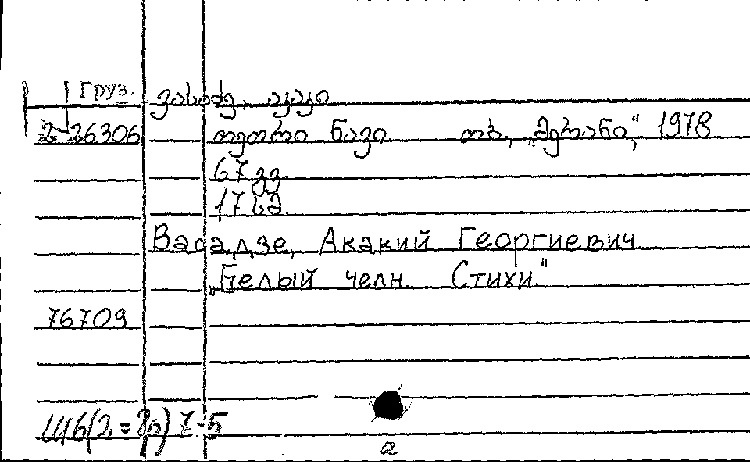 Груз.
ვასაძე, აკაკი
2-26306 თეთრი ნავი თბ., „მერანი“, 1978
67 გვ.
17 სმ.
Васадзе, Акакий Георгиевич
„Белый челн. Стихи."
76709